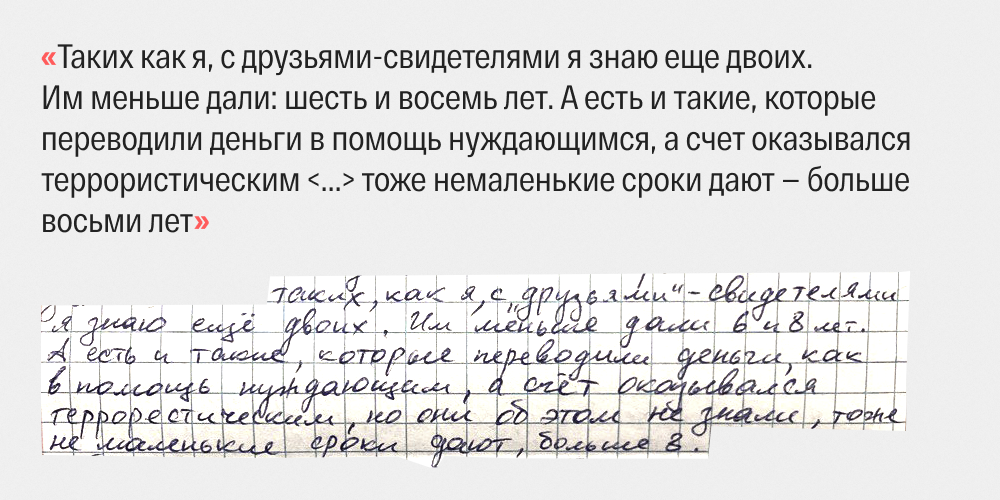 «Таких как я, с друзьями-свидетелями я знаю еще двоих.
Им меньше дали: шесть и восемь лет. А есть и такие, которые
переводили деньги в помощь нуждающимся, а счет оказывался
террористическим <...> тоже немаленькие сроки дают – больше
восьми лет»
таких, как я, с „друзьями“ - свидетелями
я знаю ещё двоих. Им меньше дали 6 и 8 лет.
А есть и такие, которые переводили деньги, как
в помощь нуждающим, а счёт оказывался
террорестическим, но они об этом не знали, тоже
не маленькие сроки дают, больше 8.